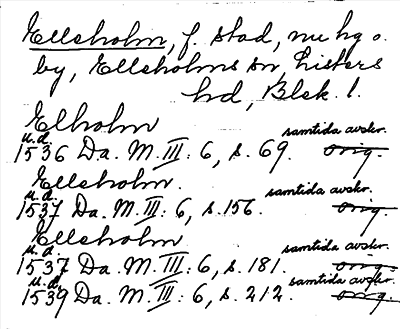 Ellsholm, f. stad, nu hg o.
by, Ellsholms sn, Listers
hd, Blek. l.
Elholm
u.d. samtida avskr.
1536 Da. M. III: 6, s. 69. orig.
Ellsholm.
u.d. samtida avskr.
1537 Da. M. III: 6, s. 156. orig.
Ellsholm
u.d. samtida avskr.
1537 Da. M. III: 6, s. 181. orig.
u.d. samtida avskr.
1539 Da. M. III: 6, s. 212. orig.